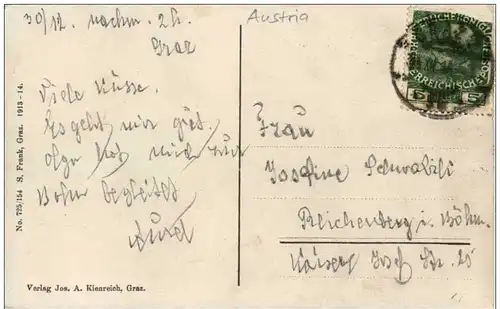 30/12. nachm. 2h.
Graz
Austria
Viele Küsse.
Es geht mir gut.
Olga hat mich zur
Bahn begleitet
ÖSTERREICHISCHE POST
5
Frau
Josefine
Reichenberg i. Böhm.
Kaiser Josef Str. 25
No. 725/154 S. Frank, Graz. 1913-14.
Verlag Jos. A. Kienreich, Graz.